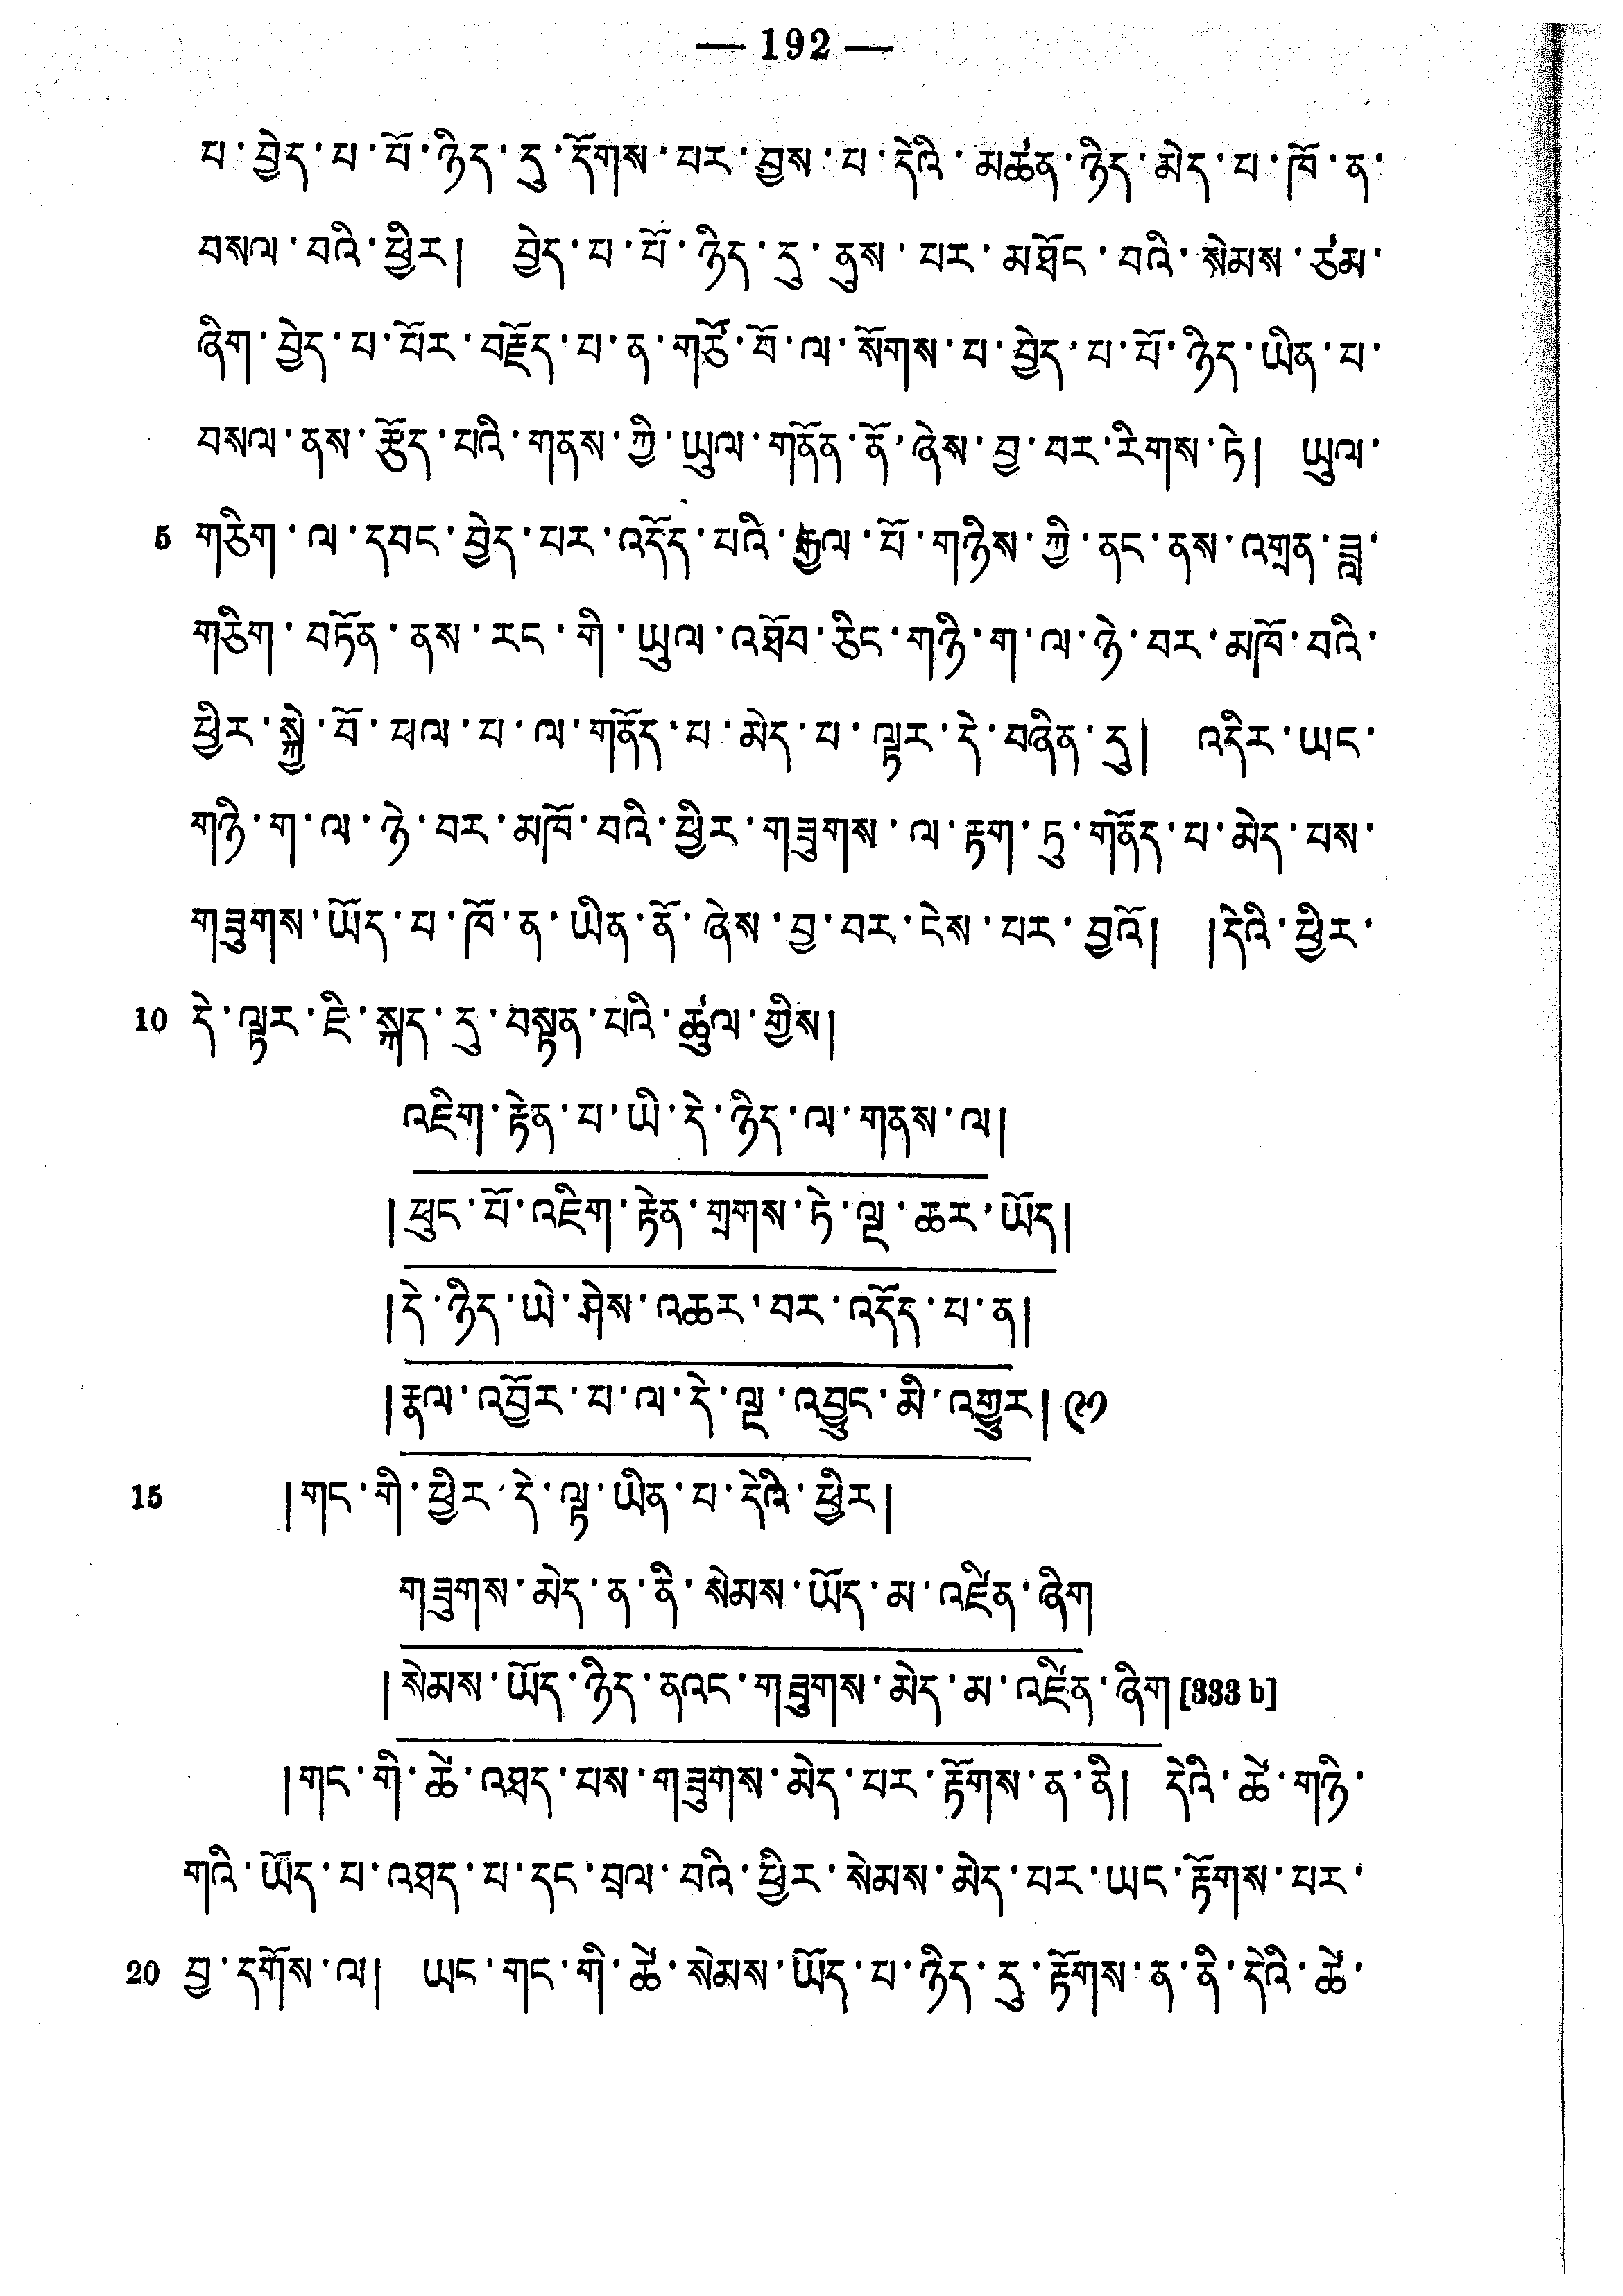 — 192 —
པ་བྱེད་པ་པོ་ཉིད་དུ་དོགས་པར་བྱས་པ་དེའི་མཚན་ཉིད་མེད་པ་ཁོ་ན་
བསལ་བའི་ཕྱིར། བྱེད་པ་པོ་ཉིད་དུ་ནུས་པར་མཐོང་བའི་སེམས་ཙམ་
ཞིག་བྱེད་པ་པོར་བརྗོད་པ་ན་གཙོ་བོ་ལ་སོགས་པ་བྱེད་པ་པོ་ཉིད་ཡིན་པ་
བསལ་ནས་རྩོད་པའི་གནས་ཀྱི་ཡུལ་གནོན་ནོ་ཞེས་བྱ་བར་རིགས་ཏེ། ཡུལ་
5 གཅིག་ལ་དབང་བྱེད་པར་འདོད་པའི་རྒྱལ་པོ་གཉིས་ཀྱི་ནང་ནས་འགྲན་ཟླ་
གཅིག་བཏོན་ནས་རང་གི་ཡུལ་འཐོབ་ཅིང་གཉི་ག་ལ་ཉེ་བར་མཁོ་བའི་
ཕྱིར་སྐྱེ་བོ་ཕལ་པ་ལ་གནོད་པ་མེད་པ་ལྟར་དེ་བཞིན་དུ། འདིར་ཡང་
གཉི་ག་ལ་ཉེ་བར་མཁོ་བའི་ཕྱིར་གཟུགས་ལ་རྟག་ཏུ་གནོད་པ་མེད་པས་
གཟུགས་ཡོད་པ་ཁོ་ན་ཡིན་ནོ་ཞེས་བྱ་བར་ངེས་པར་བྱའོ། །དེའི་ཕྱིར་
10 དེ་ལྟར་ཇི་སྐད་དུ་བསྟན་པའི་ཚུལ་གྱིས།
འཇིག་རྟེན་པ་ཡི་དེ་ཉིད་ལ་གནས་ལ།
།ཕུང་པོ་འཇིག་རྟེན་གྲགས་ཏེ་ལྔ་ཆར་ཡོད།
།དེ་ཉིད་ཡེ་ཤེས་འཆར་བར་འདོད་པ་ན།
།རྣལ་འབྱོར་པ་ལ་དེ་ལྔ་འབྱུང་མི་འགྱུར། ༩༡
15 །གང་གི་ཕྱིར་དེ་ལྟ་ཡིན་པ་དེའི་ཕྱིར།
གཟུགས་མེད་ན་ནི་སེམས་ཡོད་མ་འཛིན་ཞིག
།སེམས་ཡོད་ཉིད་ནའང་གཟུགས་མེད་མ་འཛིན་ཞིག [333 b]
།གང་གི་ཚེ་འཐད་པས་གཟུགས་མེད་པར་རྟོགས་ན་ནི། དེའི་ཚེ་གཉི་
གའི་ཡོད་པ་འཐད་པ་དང་བྲལ་བའི་ཕྱིར་སེམས་མེད་པར་ཡང་རྟོགས་པར་
20 བྱ་དགོས་ལ། ཡང་གང་གི་ཚེ་སེམས་ཡོད་པ་ཉིད་དུ་རྟོགས་ན་ནི་དེའི་ཚེ་